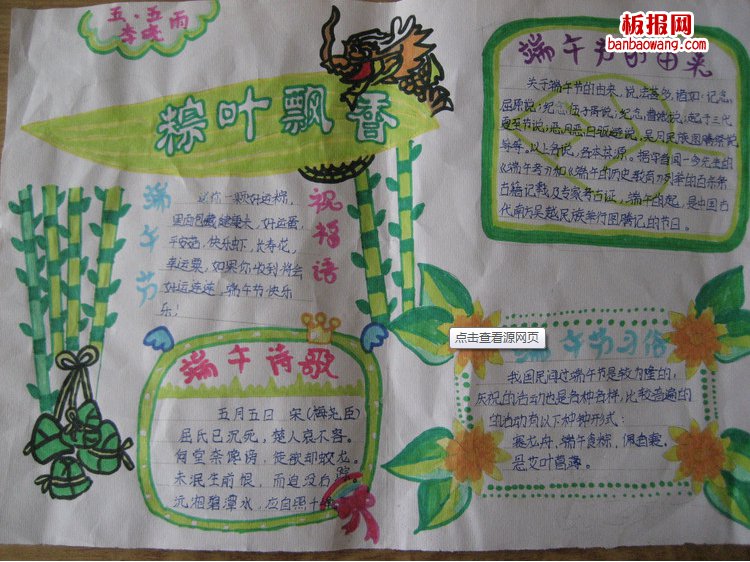 五.五雨
李
板报网
banbaowang.com
粽叶飘香
端午节的由来
关于端午节的由来,说法甚多,诸如:纪念
屈原说;纪念伍子胥说;纪念曹娥说;起于三代
夏至节说;恶月恶日驱避说,吴月民族图腾祭说
等等。以上各说,各本其源。据学者闻一多先生的
《端午考》和《端午的历史教育》列举的百余条
古籍记载及专家考古证,端午的起,是中国古
代南方吴越民族举行图腾记的节日。
端午节
祝福语
送你一颗好运粽,
里面包藏健康犬,好运蛋,
平安菇,快乐虾,长寿花,
幸运栗,如果你收到将会
好运连连,端午节快乐
乐!
点击查看源网页
端午诗歌
五月五日 宋(梅尧臣)
屈氏已沉死,楚人哀不容。
何尝奈谗谤,徒欲却蛟龙。
未泯生前恨,而追没后踪
沅湘碧潭水,应自照千
端午节习俗
我国民间过端午节是较为隆的,
庆祝的活动也是各种各样,比较普遍的
的活动有以下种种形式:
赛龙舟,端午食粽,佩香囊。
悬艾叶菖蒲。